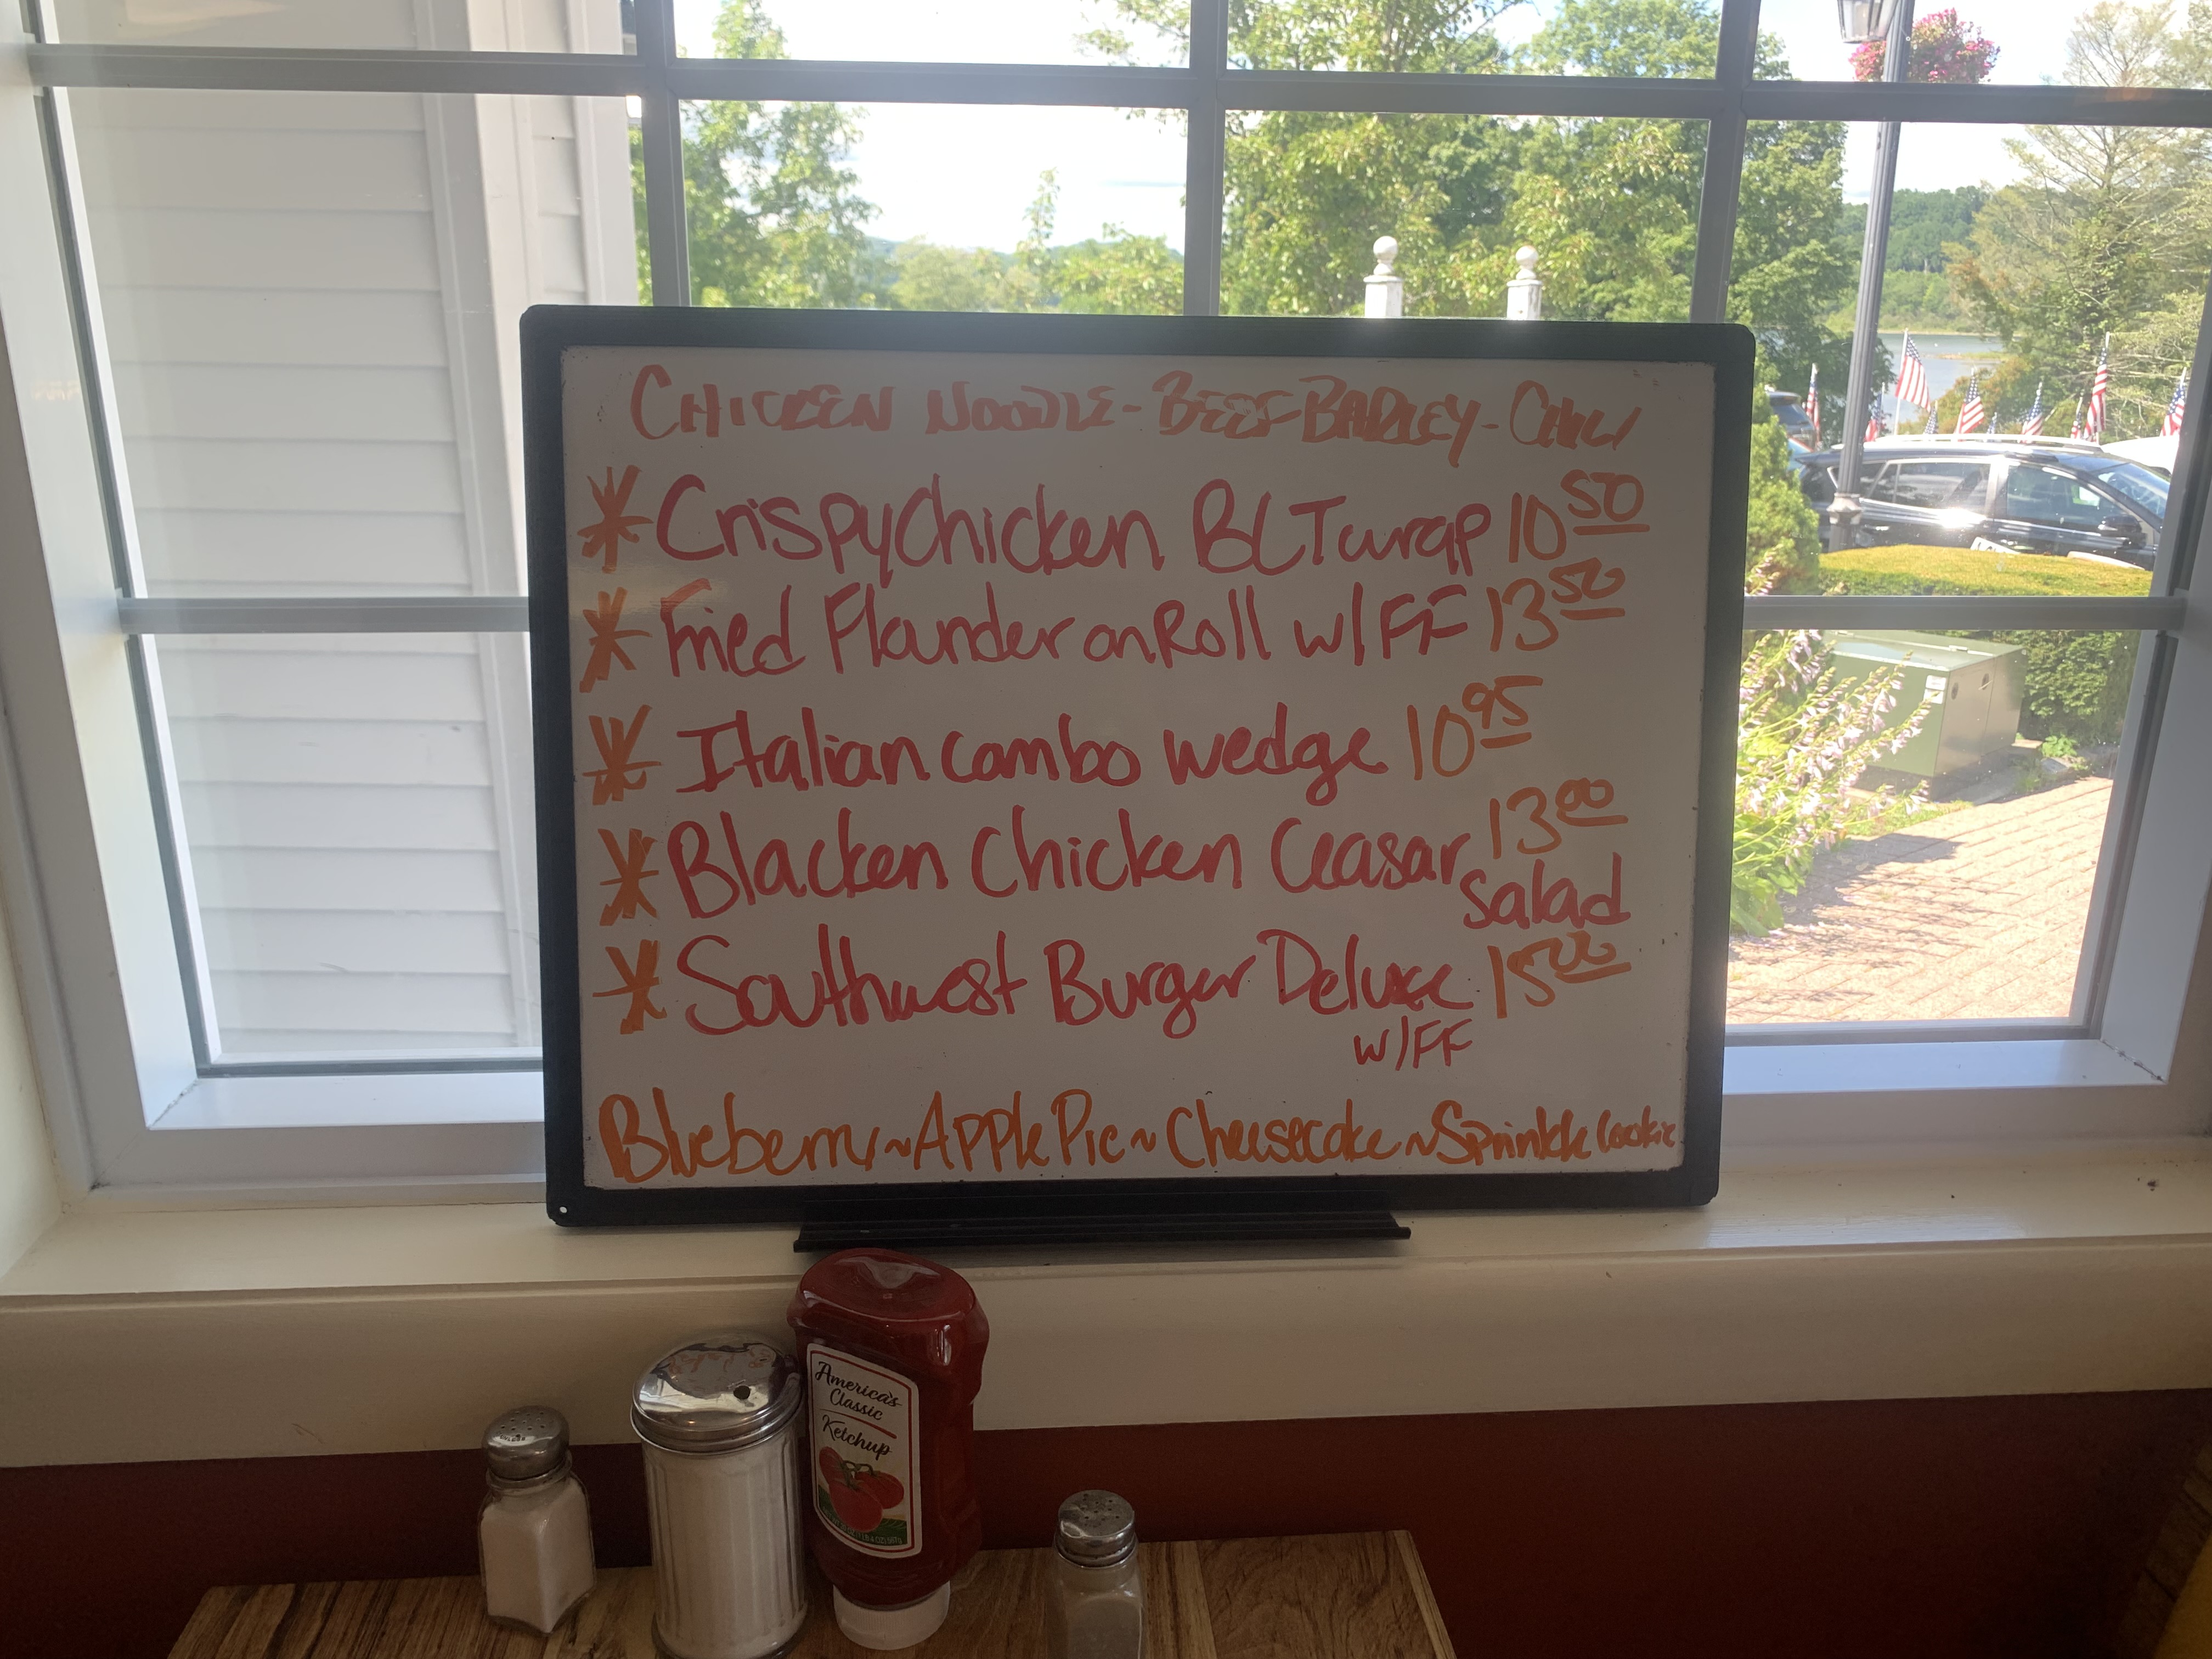 CHICKEN NOODLE - BEEF BARLEY - CHILI
* Crispy Chicken BLT wrap 10 50
* Fried Flounder on Roll w/FF 13 50
* Italian combo wedge 10 95
* Blacken Chicken Ceasar 13 00
Salad
* Southwest Burger Deluxe 15 00
w/FF
Blueberry ~ Apple Pie ~ Cheesecake ~ Sprinkle Cookie
America's
Classic
Ketchup